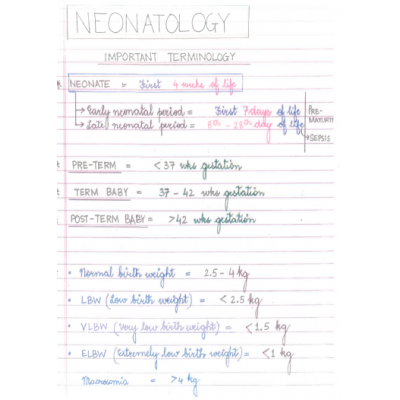 NEONATOLOGY
IMPORTANT TERMINOLOGY
NEONATE :- First 4 weeks of life
→ Early neonatal period = First 7 days of life
→ Late neonatal period = 8th - 28th day of life
PRE-
MATURITY
→ SEPSIS
PRE-TERM = < 37 wks gestation
TERM BABY = 37 - 42 wks gestation
POST-TERM BABY = >42 wks gestation
• Normal birth weight = 2.5 - 4 kg
• LBW (Low birth weight) = < 2.5 kg
• VLBW (Very low birth weight) = <1.5 kg
• ELBW (Extremely low birth weight) = <1 kg
Macrosomia = >4 kg